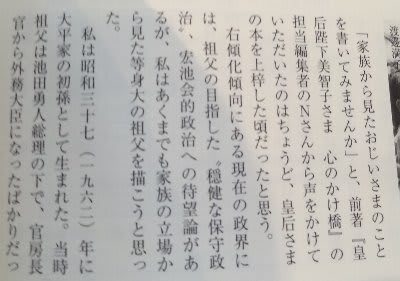 渡邊満子
「家族から見たおじいさまのこと
を書いてみませんか」と、前著『皇
后陛下美智子さま 心のかけ橋』の
担当編集者のNさんから声をかけて
いただいたのはちょうど、皇后さま
の本を上梓した頃だったと思う。
右傾化傾向にある現在の政界に
は、祖父の目指した〝穏健な保守政
治〟、宏池会的政治への待望論があ
るが、私はあくまでも家族の立場か
ら見た等身大の祖父を描こうと思っ
た。
私は昭和三十七（一九六二）年に
大平家の初孫として生まれた。当時
祖父は池田勇人総理の下で、官房長
官から外務大臣になったばかりだっ